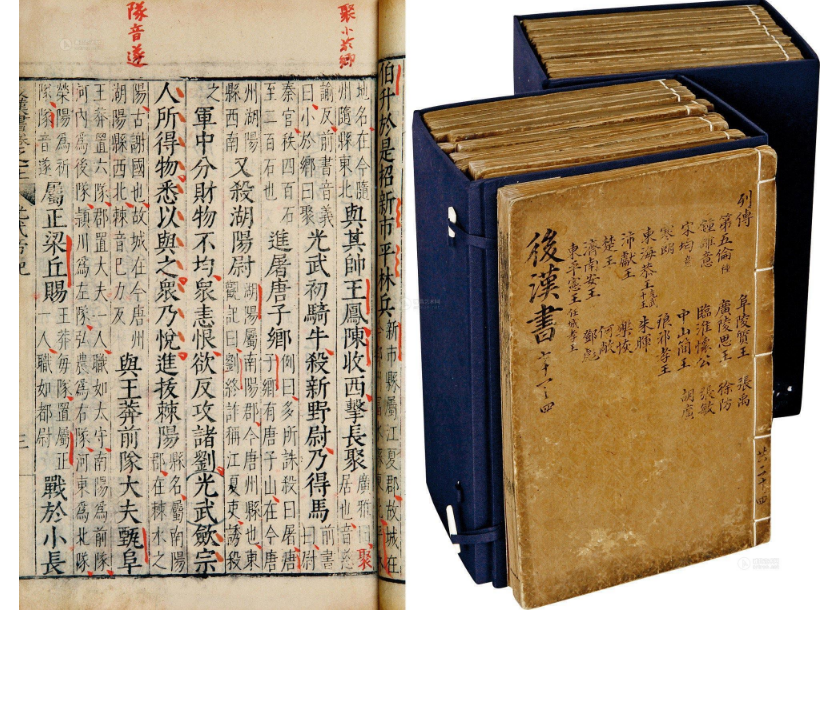 聚小於鄉
隊音遂
伯升於是招新市平林兵
新市縣屬江夏郡故城在
地名在今隨
州隨縣東北
與其帥王鳳陳收西擊長聚
廣雅曰聚
居也音慈
諭反前書音義
曰小於鄉曰聚
光武初騎牛殺新野尉乃得馬
前書
曰尉
秦官秩四百石
至二百石也
進屠唐子鄉
例曰多所誅殺曰屠唐
子鄉有唐子山在今唐
州湖陽
縣西南
又殺湖陽尉
湖陽屬南陽郡今唐州縣也東
觀記曰劉終詐稱江夏吏誘殺
之
軍中分財物不均衆恚恨欲反攻諸劉光武斂宗
人所得物悉以與之衆乃悅進拔棘陽
縣名屬南陽
郡在棘水之
陽古謝國也故城在今唐州
湖陽縣西北棘音已力反
與王莽前隊大夫甄阜
王莽置六隊郡置大夫一人職如太守南陽為前隊
河內為後隊潁川為左隊弘農為右隊河東為北隊
滎陽為祈
隊隊音遂
屬正梁丘賜
王莽每隊置屬正
一人職如都尉
戰於小長
列傳
第五倫 阜陵質王 張禹
鍾離意 廣陵思王 徐防
宋均 臨淮懷公 張敏
寒朗 中山簡王 胡廣
東海恭王 琅邪孝王
沛獻王 朱暉
楚王 樂恢
濟南安王 何敞
東平憲王 任城孝王 鄧彪
後漢書